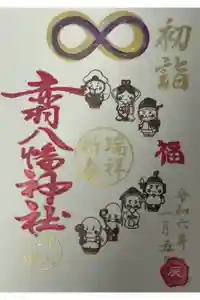 初詣
福
令和六年
一月五日
瑞祥
新春
赤羽八幡神社
辰